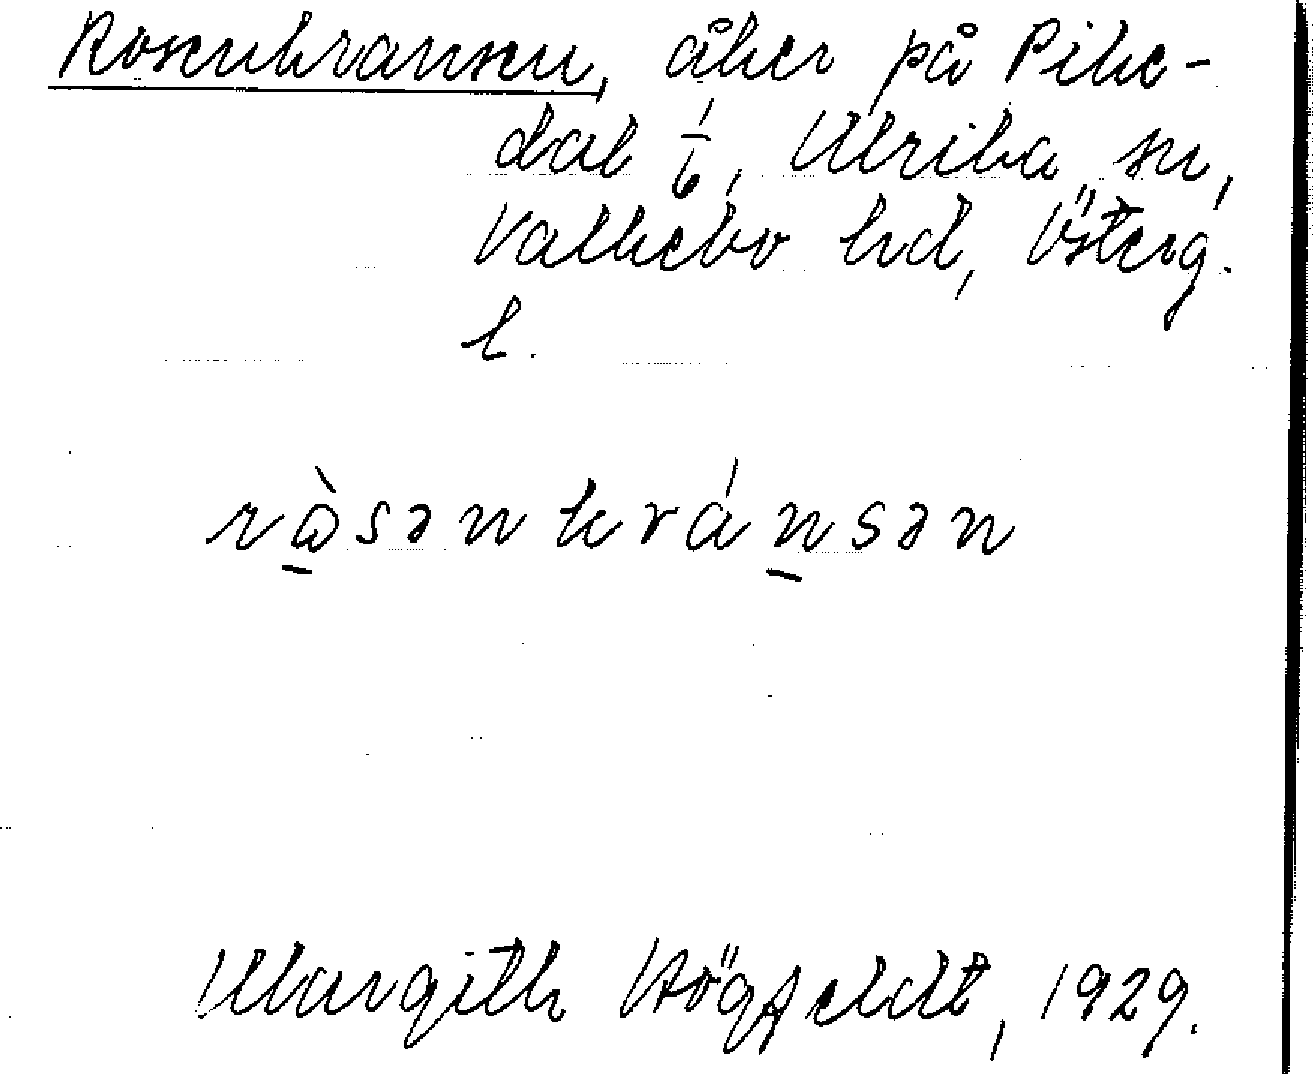 Rosenkransen, åker på Pike-
dal 1/6, Ulrika sn,
Valkebo hd, Österg.
l.
rὼsənkránsən
Margith Högfeldt, 1929.